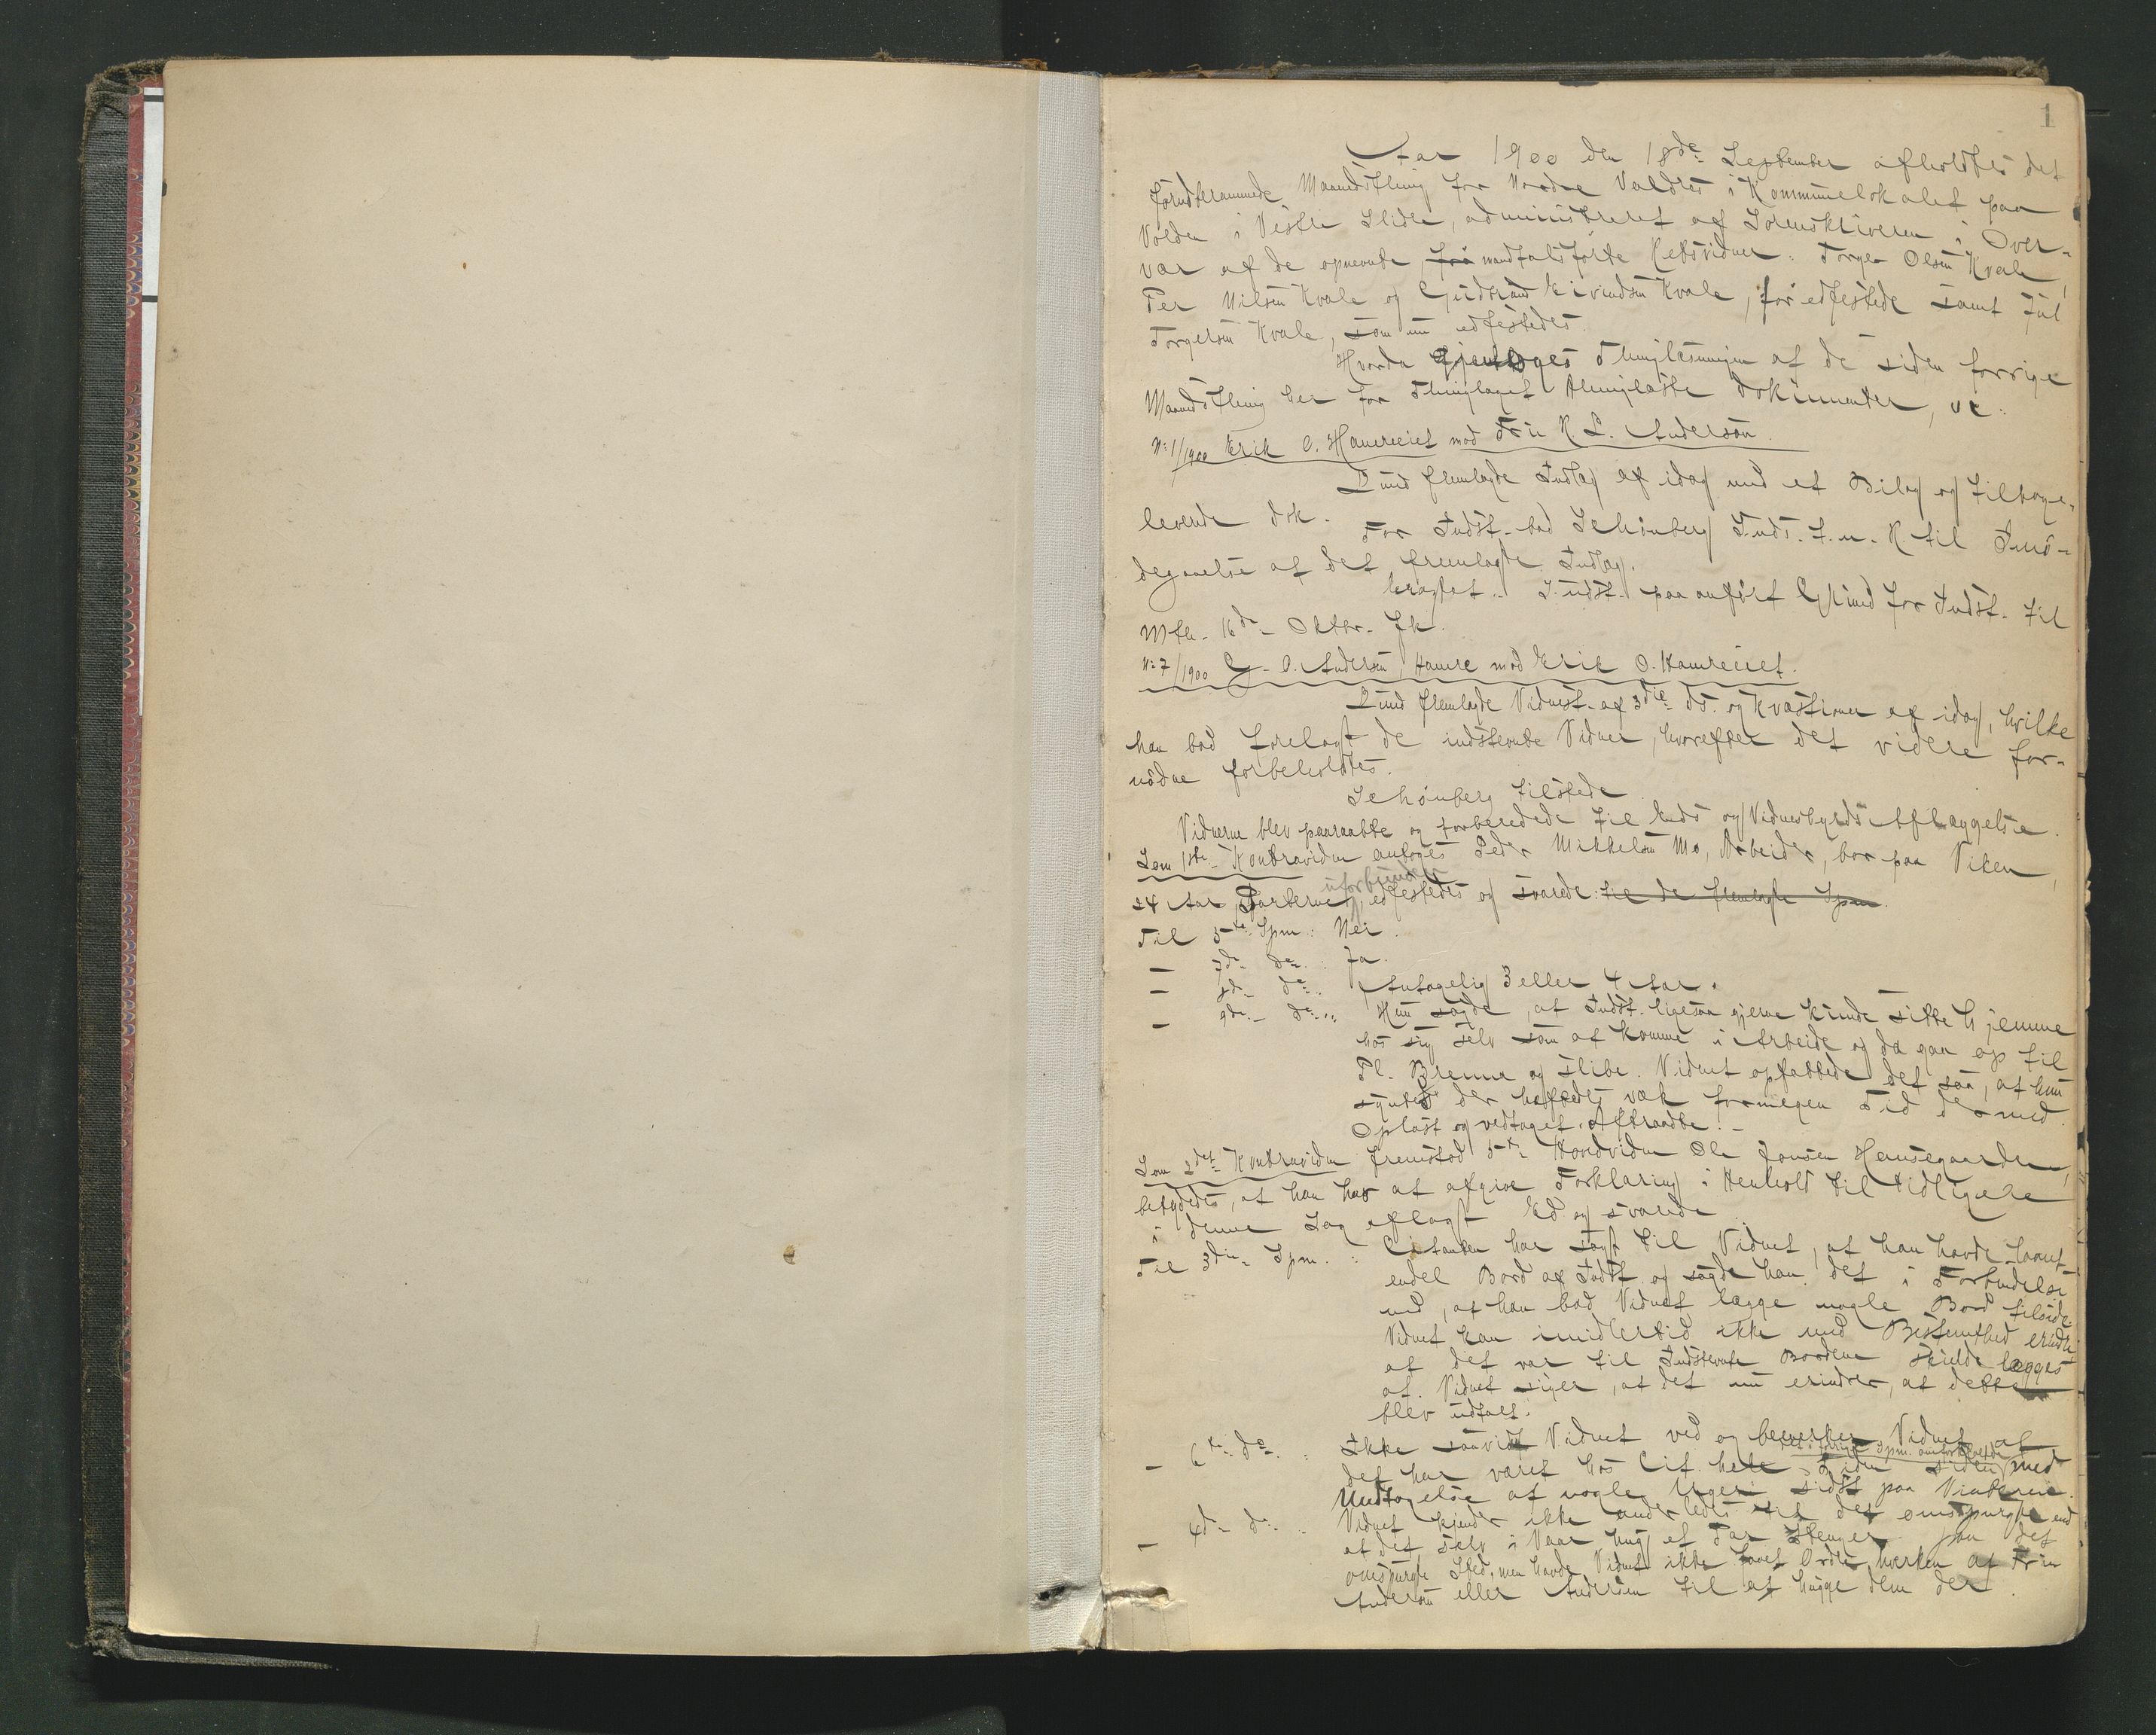 1
Aar 1900 den 18de September afholdtes det
forudberammede Maanedsthing for Nordre Valdres i Kommunelokalet paa
Volden i Vestre Slidre, administreret af Sorenskriveren i Over-
vær af de opnævnte mandtalsførte Retsvidner: Torger Olsen Kvale,
Per Nilsen Kvale og Gudbrand Eivindsen Kvale, før edfæstede samt Jul
Torgersen Kvale, som nu edfæstedes.
Hvorda Thinglæsningen af de siden forrige
Maanedsthing her for Thinglaget thinglæste Dokumenter, ve:
No 1/1900 Erik O. Hamreeiet mod Fru K L. Anderson.
Lund fremlagde Indlæg af idag med et Bilag og tilbage-
leverede Dok.
For Indst. bad Schønberg Uds. t. n. R. til Imø-
degaaelse af det fremlagte Indlæg.
Eragtet. Udst. paa anført Grund for Indst. til
Mth. 16de Oktbr. Fk.
No 7/1900 G. O. Anderson, Hamre mod Erik O. Hamreeiet.
Lund fremlagde Vidnest. af 3die ds. og Kvæstioner af idag, hvilke
han bad forelagt de indstevnte Vidner, hvorefter det videre for-
nødne forbeholdtes.
Schønberg tilstede.
Vidnerne blev paaraabte og forberedede til Eds og Vidnesbyrds Aflæggelse.
Som 1ste Kontravidne antoges Peder Mikkelsen Mo, Arbeider, bor paa Viken,
24 Aar, uforbunden Parterne, edfæstedes og svarede: til de fremlagte Spm.
Til 5te Spm: Nei.
— 7de do: Ja.
— 8de do: Antagelig 3 eller 4 Aar.
— 9de do: Hun sagde, at Indst. ligesaa gjerne kunde sitte hjemme
hos sig selv som at komme i Arbeide og da gaa op til
Pl. Brenna og slibe. Vidnet opfattede det saa, at hun
syntes der heftedes væk formegen Tid dermed.
Oplæst og vedtaget. Aftraadte.
Som 2det Kontravidne fremstod 5te Hovedvidne Ole Jonsen Hausegaarden,
betydedes, at han har at afgive Forklaring i Henhold til tidligere
i denne Sag aflagt Ed og svarede
Til 3die Spm.: Citanten har sagt til Vidnet, at han havde laant
endel Bord af Indst. og sagde han det i Forbindelse
med, at han bad Vidnet lægge nogle Bord tilside.
Vidnet kan imidlertid ikke med Bestemthed erindre
at det var til Indstevnte Bordene skulde lægges
af. Vidnet siger, at det nu erindrer, at dette
blev udtalt.
— 6te do: Ikke saavidt Vidnet ved og bemerker Vidnet at
det har været hos Cit. hele Tiden siden med
Undtagelse af nogle Uger sidst paa Vinteren.
— 4de do: Vidnet kjender ikke anderledes til det omspurgte end
at det selv i Vaar hug et Par Stenger paa det
omspurgte Sted, men havde Vidnet ikke faaet Ordre hverken af Fru
Anderson eller Anderson til at hugge dem der.